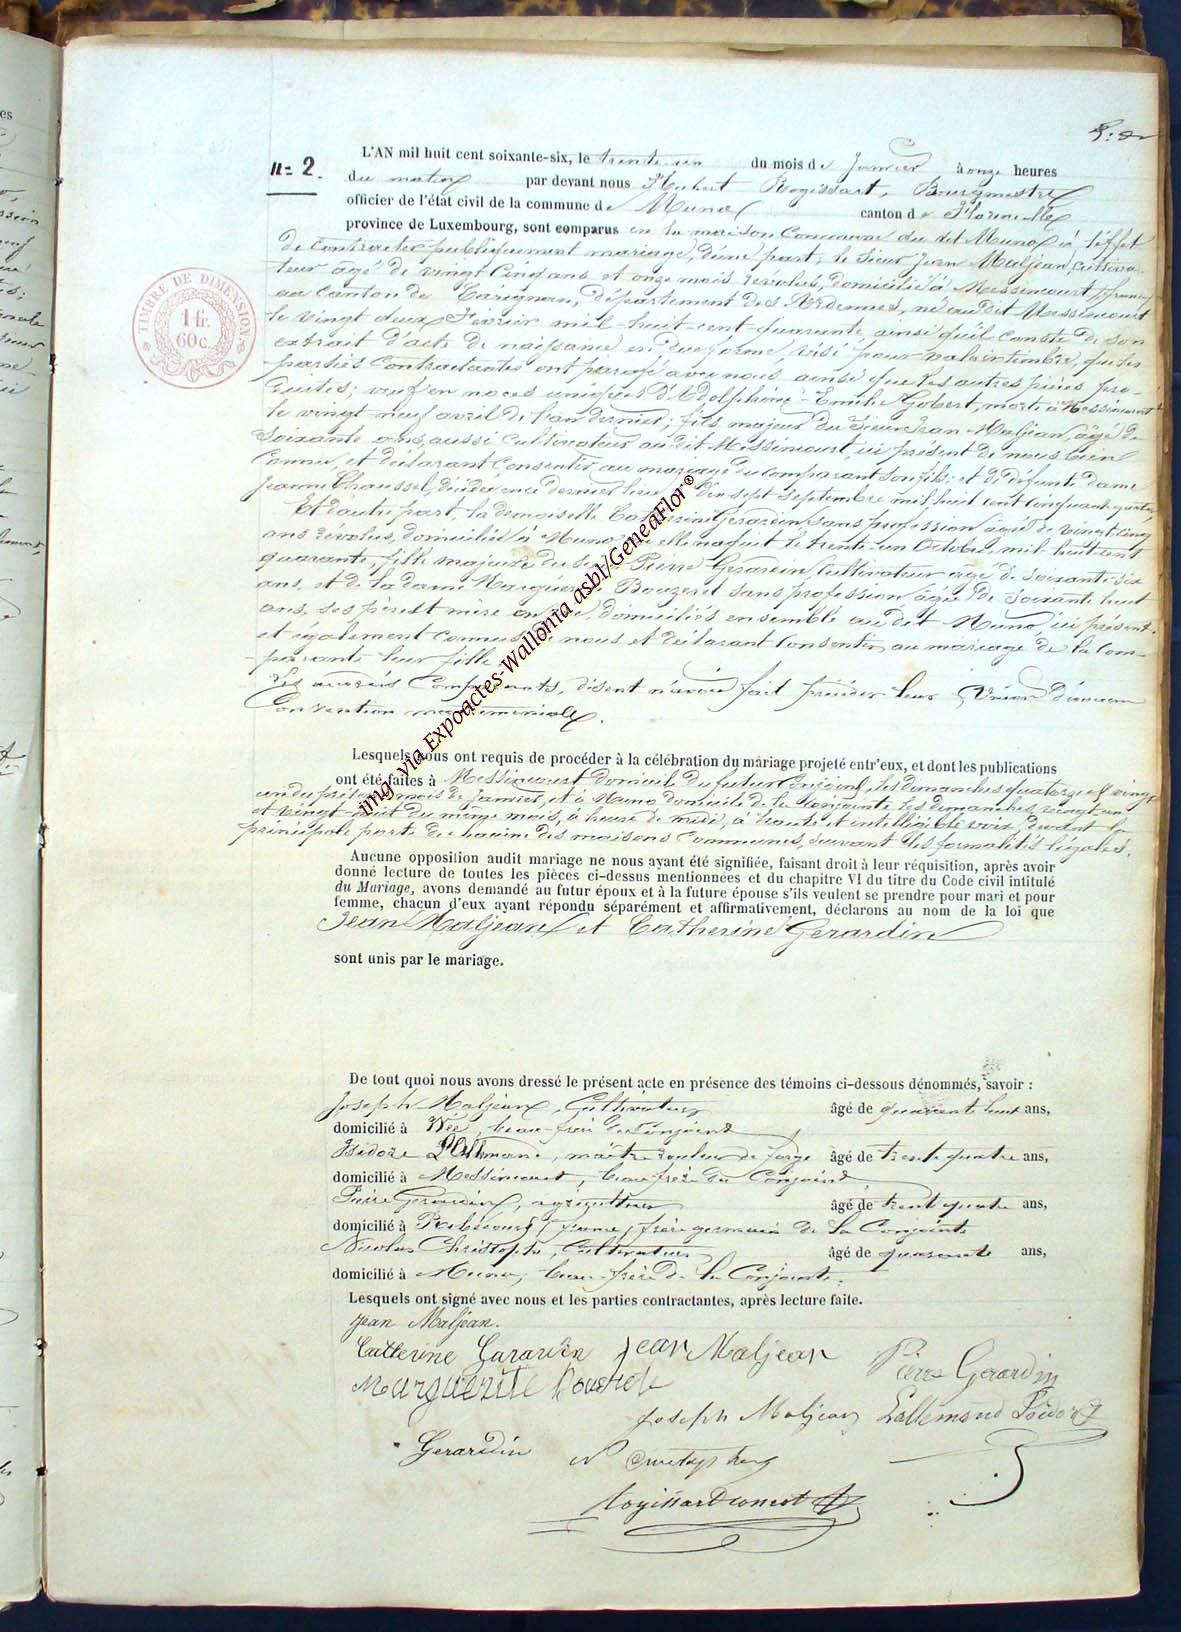 n= 2.
L'AN mil huit cent soixante-six, le trente-un du mois de Janvier à onze heures
du matin par devant nous Hubert Rogissart, Bourgmestre
officier de l'état civil de la commune de Muno canton de Florenville
province de Luxembourg, sont comparus en la maison Commune du dit Muno à l'effet
de contracter publiquement mariage, d'une part; le Sieur Jean Maljean, cultiva-
teur âgé de vingt Cinq ans et onze mois révolus, domicilié à Messincourt, france,
au canton de Carignan, département des Ardennes, né au dit Messincourt
le vingt deux Février mil-huit-cent-quarante, ainsi qu'il conste de son
extrait d'acte de naissance en due forme, visé pour valoir timbre, que les
parties Contractantes ont parafé avec nous ainsi que les autres pièces pro-
duites; veuf en noces uniques d'Adolphine-Emilie Gobert, morte à Messincourt
le vingt-neuf avril de l'an dernier; fils majeur du Sieur Jean-Maljean, âgé de
soixante ans, aussi Cultivateur au dit Messincourt, ici présent de nous bien
Connu, et déclarant Consentir au mariage du Comparant son fils: et de défunte dame
Jeanne Chaussel, décédée en ce dernier lieu, sept Septembre mil huit cent cinquante quatre,
Et d'autre part, la demoiselle Catherine Gerardin, sans profession âgée de vingt Cinq
ans révolus, domiciliée à Muno où elle naquit le trente-un Octobre mil huit cent
quarante, fille majeure du Sieur Pierre Gerardin, Cultivateur âgé de soixante-six
ans, et de la dame Marguerite Bouzerel sans profession âgée de soixante huit
ans, ses père et mère domiciliés ensemble au dit Muno, ici présents
et également Connus de nous et déclarant Consentir au mariage de la Com-
parante leur fille
Les Comparants, disent n'avoir fait précéder leur Union d'aucune
Convention matrimoniale.
Lesquels nous ont requis de procéder à la célébration du mariage projeté entr'eux, et dont les publications
ont été faites à Messincourt domicile du futur Conjoint, les dimanches quatorze et vingt
un du présent mois de Janvier, et à Muno domicile de la conjointe les dimanches vingt un
et vingt-huit du même mois, à heure de midi, à haute et intelligible voix, devant la
principale porte de chacune des maisons Communes, suivant les formalités légales.
Aucune opposition audit mariage ne nous ayant été signifiée, faisant droit à leur réquisition, après avoir
donné lecture de toutes les pièces ci-dessus mentionnées et du chapitre VI du titre du Code civil intitulé
du Mariage, avons demandé au futur époux et à la future épouse s'ils veulent se prendre pour mari et pour
femme, chacun d'eux ayant répondu séparément et affirmativement, déclarons au nom de la loi que
Jean Maljean et Catherine Gerardin
sont unis par le mariage.
De tout quoi nous avons dressé le présent acte en présence des témoins ci-dessous dénommés, savoir :
Joseph Maljean, Cultivateur âgé de quarante huit ans,
domicilié à Wée, beau-frère du Conjoint
Isidore L'Allemand, maître rouleur de forge âgé de trente quatre ans,
domicilié à Messincourt, beau frère du Conjoint
Pierre Gerardin, agriculteur âgé de trente quatre ans,
domicilié à france, frère germain de la Conjointe
Nicolas Christophe, Cultivateur âgé de quarante ans,
domicilié à Muno, beau-frère de la Conjointe.
Lesquels ont signé avec nous et les parties contractantes, après lecture faite.
Jean Maljean.
Catterine Gerardin Jean Maljean Pierre Gerardin
Marguerite
Joseph Maljean Lallemand Isidore
Gerardin N
TIMBRE DE DIMENSION
1 fr.
60 c.
img via Expoactes-Wallonia asbl/GeneaFlor®